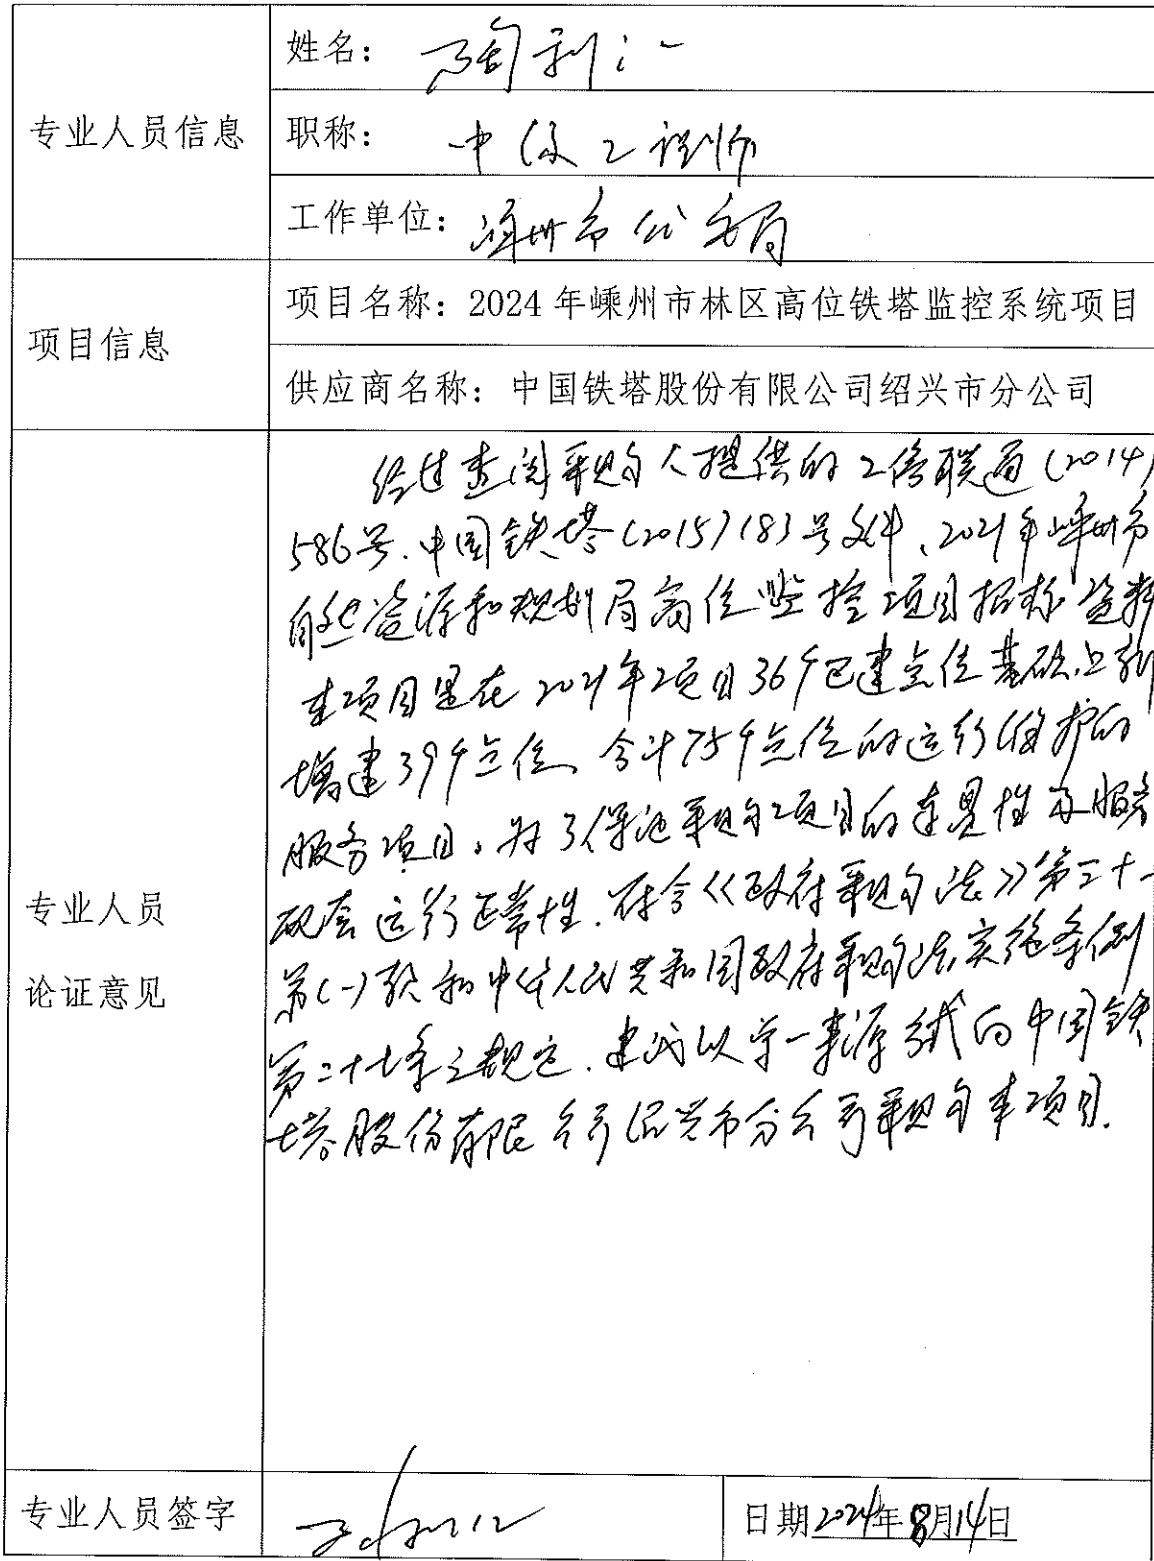 姓名：陶利江
专业人员信息
职称：中级工程师
工作单位：嵊州市公安局
项目信息
项目名称：2024年嵊州市林区高位铁塔监控系统项目
供应商名称：中国铁塔股份有限公司绍兴市分公司
经过查阅采购人提供的工信部联通(2014)
586号、中国铁塔(2015)183号文件、2021年嵊州市
自然资源和规划局高位监控项目招标资料
本项目是在2021年项目36个已建点位基础上新
增建39个点位、合计75个点位的运行维护的
服务项目。为了保证采购项目的一致性及服务
配套运行正常性.符合《政府采购法》第三十一
第(一)款和中华人民共和国政府采购法实施条例
第二十七条之规定.建议以单一来源方式向中国铁
塔股份有限公司绍兴市分公司采购本项目.
专业人员
论证意见
专业人员签字
日期2024年8月14日